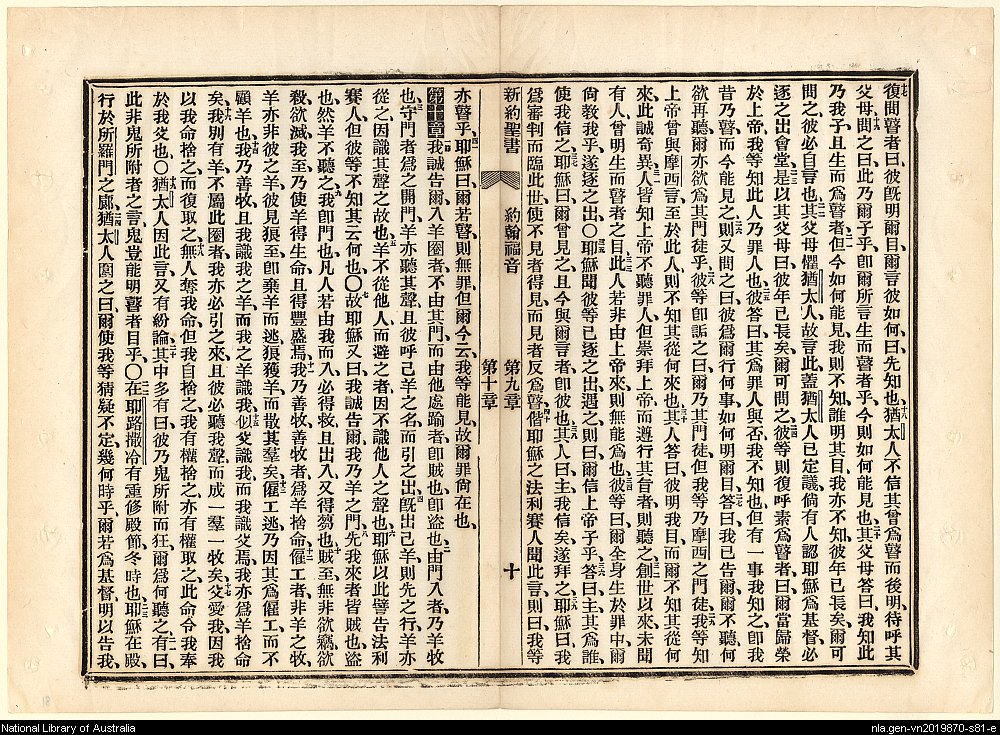 復問瞽者曰、彼既明爾目、爾言彼如何、曰、先知也、猶太人不信其曾爲瞽而後明、待呼其
父母、問之曰、此乃爾子乎、卽爾所言生而瞽者乎、今則如何能見也、其父母答曰、我知此
乃我子、且生而爲瞽者、但今如何能見、我則不知、誰明其目、我亦不知、彼年已長矣、爾可
問之、彼必自言也、其父母懼猶太人、故言此、蓋猶太人已定議、倘有人認耶穌爲基督、必
逐之出會堂、是以其父母曰、彼年已長矣、爾可問之、彼等則復呼素爲瞽者、曰、爾當歸榮
於上帝、我等知此人乃罪人也、彼答曰、其爲罪人與否、我不知也、但有一事我知之、卽我
昔乃瞽、而今能見之、則又問之曰、彼爲爾行何事、如何明爾目、答曰、我已告爾、爾不聽、何
欲再聽、爾亦欲爲其門徒乎、彼等卽詬之曰、爾乃其門徒、但我等乃摩西之門徒、我等知
上帝曾與摩西言、至於此人、則不知其從何來也、其人答曰、彼明我目、而爾不知其從何
來、此誠奇異、人皆知上帝不聽罪人、但崇拜上帝而遵行其旨者、則聽之、創世以來、未聞
有人曾明生而瞽者之目、此人若非由上帝來、則無能爲也、彼等曰、爾全身生於罪中、爾
尙敎我乎、遂逐之出、〇耶穌聞彼等已逐之出、遇之則曰、爾信上帝子乎、答曰、主、其爲誰、
使我信之、耶穌曰、爾曾見之、且今與爾言者卽彼也、其人曰、主、我信矣、遂拜之、耶穌曰、我
爲審判而臨此世、使不見者得見、而見者反爲瞽、偕耶穌之法利賽人聞此言、則曰、我等
新約聖書 約翰福音 第九章 第十章 十
亦瞽乎、耶穌曰、爾若瞽、則無罪、但爾今云、我等能見、故爾罪尙在也、
第十章 我誠告爾、入羊圈者、不由其門、而由他處踰者、卽賊也、卽盜也、由門入者、乃羊牧
也、守門者爲之開門、羊亦聽其聲、且彼呼己羊之名、而引之出、旣出己羊、則先之行、羊亦
從之、因識其聲之故也、羊不從他人而避之者、因不識他人之聲也、耶穌以此譬告法利
賽人、但彼等不知其云何也、〇故耶穌又曰、我誠告爾、我乃羊之門、先我來者皆賊也、盜
也、然羊不聽之、我卽門也、凡人若由我而入、必得救、且出入又得芻也、賊至、無非欲竊欲
殺欲滅、我至、乃使羊得生命、且得豐盛焉、我乃善牧、善牧者爲羊捨命、傭工者非羊之牧、
羊亦非彼之羊、彼見狼至、卽棄羊而逃、狼獲羊而散其羣矣、傭工逃、乃因其爲傭工而不
顧羊也、我乃善牧、且我識我之羊、而我之羊識我、似父識我而我識父焉、我亦爲羊捨命
矣、我別有羊、不屬此圈者、我亦必引之來、且彼必聽我聲、而成一羣一牧矣、父愛我、因我
以我命捨之、而復取之、無人奪我命、但我自捨之、我有權捨之、亦有權取之、此命令我奉
於我父也、〇猶太人因此言、又有紛論、其中多有曰、彼乃鬼所附而狂、爾爲何聽之、有曰、
此非鬼所附者之言、鬼豈能明瞽者目乎、〇在耶路撒冷有重修殿節、冬時也、耶穌在殿、
行於所羅門之廊、猶太人圜之曰、爾使我等猜疑不定、幾何時乎、爾若爲基督、明以告我、
National Library of Australia
nla.gen-vn2019870-s81-e